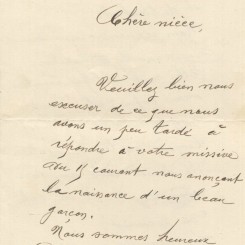 Chère nièce,
Veuillez bien nous
excuser de ce que nous
avons un peu tardé à
répondre à votre missive
du courant nous anonçant
la naissance d'un beau
garçon.
Nous sommes heureux